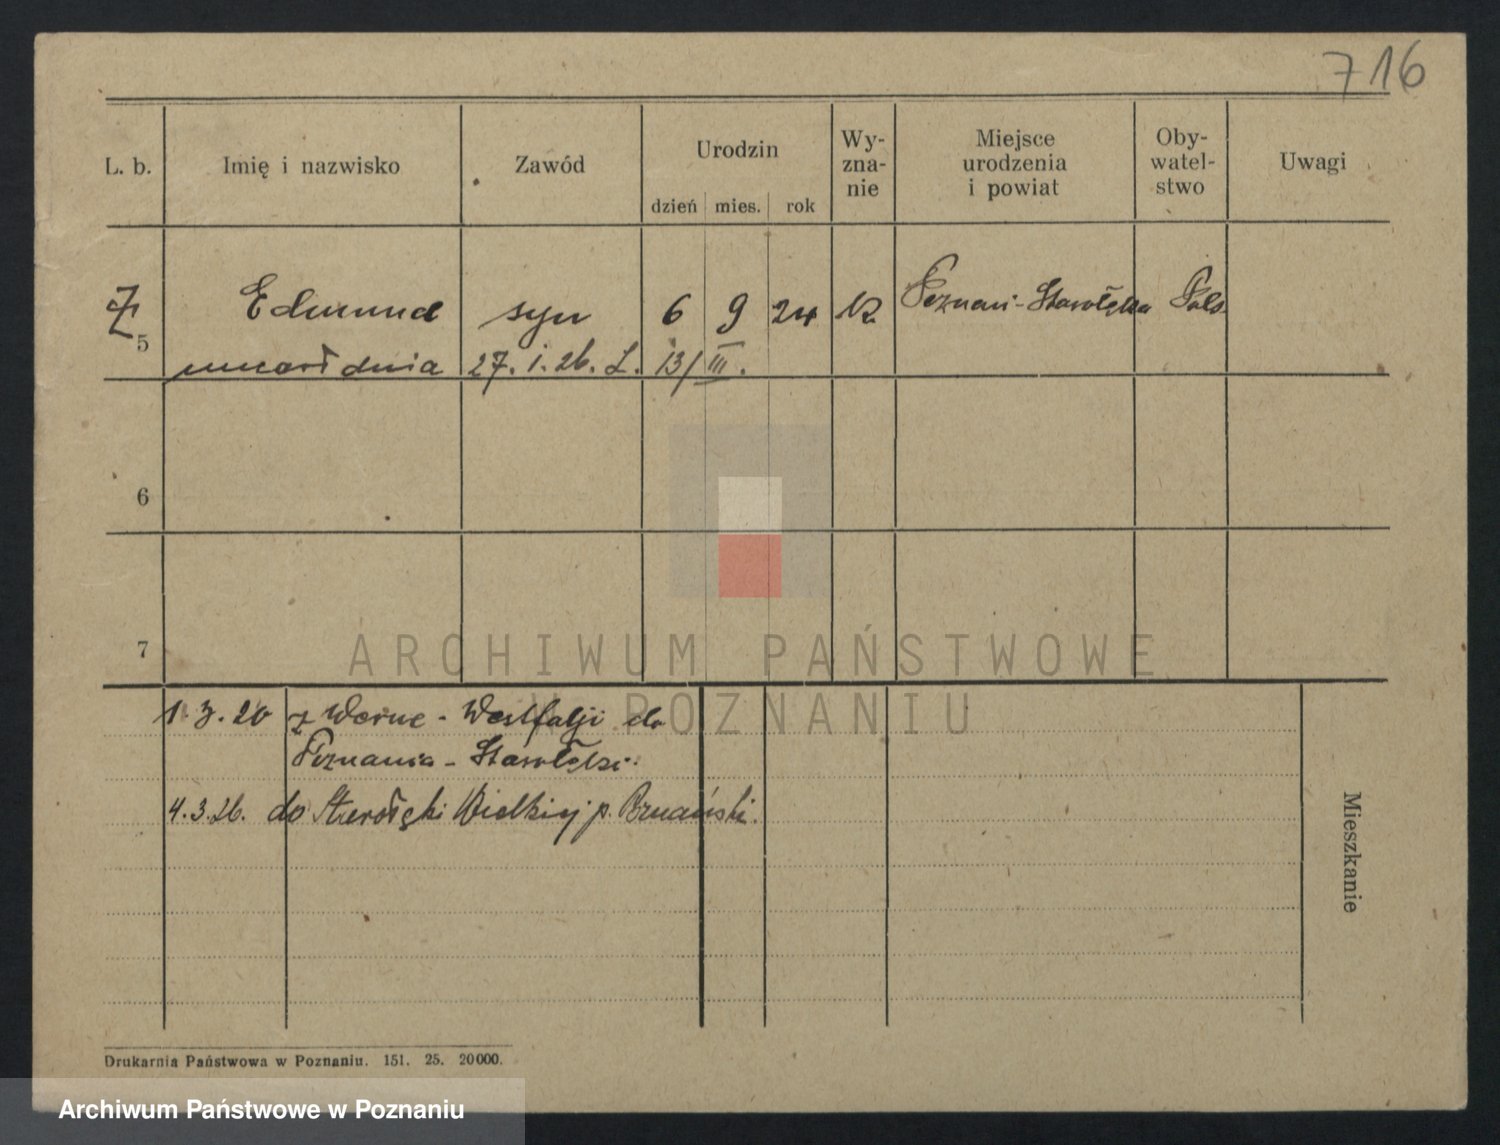 716
L. b.
Imię i nazwisko
Zawód
Urodzin
dzień mies. rok
Wy-
zna-
nie
Miejsce
urodzenia
i powiat
Oby-
watel-
stwo
Uwagi
5 Edmund syn 6 9 24 Poznań-Starołęka Pols.
umarł dnia 27. 1. 26. L. 13/III.
6
7
ARCHIWUM PAŃSTWOWE
W POZNANIU
z Werne - Westfalji do
Poznania - Starołęki.
4.3.26. do Starołęki Wielkiej p. Poznański.
Mieszkanie
Drukarnia Państwowa w Poznaniu. 151. 25. 20000.
Archiwum Państwowe w Poznaniu